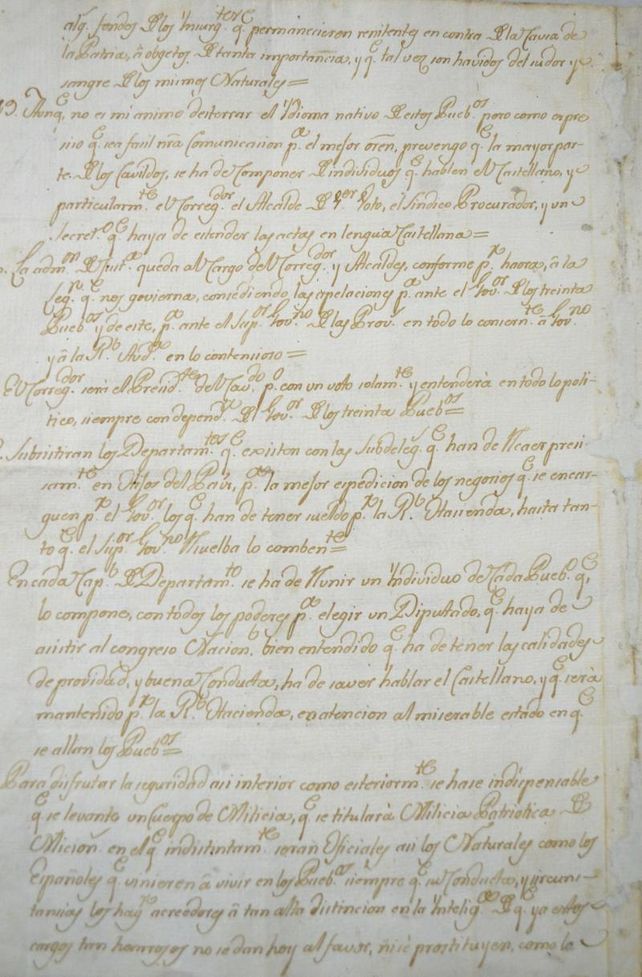 alg.s fondos de los Insurg.tes q.e permanecieron renitentes en contra de la Causa de
la Patria, â objetos de tanta importancia, y q.e tal vez son havidos del sudor y
sangre de los mismos Naturales=
19. Aunq.e no es mi animo desterrar el Ydioma nativo de estos Pueb.os pero como es pre
ciso q.e sea facil nra Comunicacion p.a el mejor orñ, prevengo q.e la mayor par-
te de los Cavildos, se ha de Componer de individuos q.e hablen el Castellano, y
particularm.te el Correg.dor el Alcalde de 1.er Voto, el Sindico Procurador, y un
Secret.o q.e haya de estender las actas en lengua Castellana=
La adm.on de Just.a queda al Cargo del Correg.dor y Alcaldes, conforme p.r haora, â la
Leg.n q.e nos govierna, concediendo las apelaciones p.a ante el Gov.or de los treinta
Pueb.os y de este, p.a ante el Sup.or Gov.no de las Prov.s en todo lo concern.te â Gov.no
y â la R.l Aud.a en lo contencioso=
El Correg.dor será el Presid.te del Cav.do p.o con un voto solam.te y entenderá en todo lo poli-
tico, siempre con depend.a del Gov.or de los treinta Pueb.os=
Subsistiran los Departam.tos q.e existen con las Subdeleg.s q.e han de Recaer preci-
sam.te en Hijos del Pais, p.a la mejor espedicion de los negocios q.e se encar-
guen p.r el Gov.or los q.e han de tener sueldo p.r la R.l Hacienda, hasta tan-
to q.e el Sup.or Gov.no Resuelba lo comben.te=
En cada Cap.l de Departam.to se ha de Reunir un Individuo de Cada Pueb.o q.e
lo compone, con todos los poderes p.a elegir un Diputado, q.e haya de
asistir al congreso Nacion.l bien entendido q.e ha de tener las calidades
de providad, y buena Conducta, ha de saver hablar el Castellano, y q.e será
mantenido p.r la R.l Hacienda, en atencion al miserable estado en q.e
se allan los Pueb.os=
Para disfrutar la seguridad asi interior como esteriorm.te se hace indispensable
q.e se levante un Cuerpo de Milicia, q.e se titulará Milicia Patriotica de
Micion.s en el q.e indistintam.te serán Oficiales asi los Naturales como los
Españoles q.e vinieren â vivir en los Pueb.os siempre q.e su Conducta, y circuns-
tancias los hag.n acreedores â tan alta distincion en la Intelig.a de q.e ya estos
cargos tan honrrosos no se dan hoy al favor, ñi se prostituyen, como lo